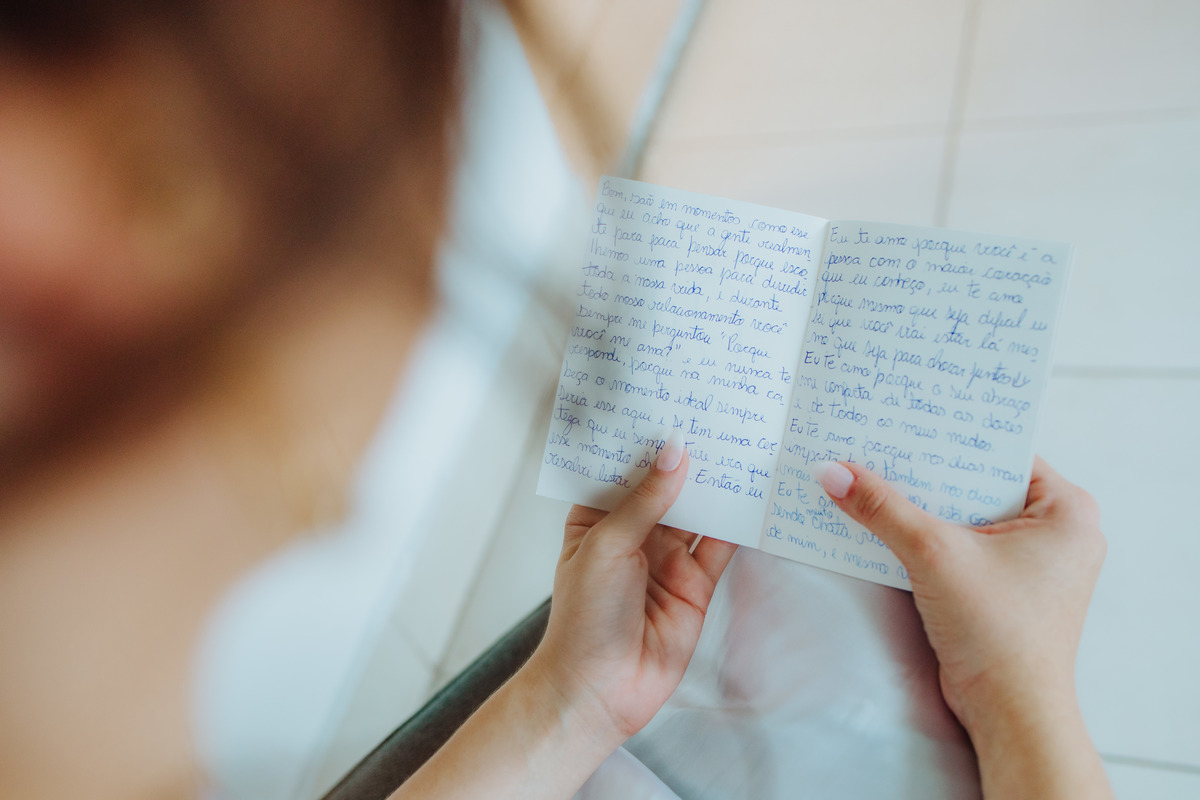 Bom, são em momentos como esse
que eu acho que a gente realmen
te para para pensar porque esco
lhemos uma pessoa para dividir
toda a nossa vida, e durante
todo nosso relacionamento você
sempre me perguntou "Porque
você me ama?" e eu nunca te
respondi, porque na minha ca
beça o momento ideal sempre
seria esse aqui e se tem uma cer
teza que eu sempre tive era que
esse momento Então eu
resolvi listar
Eu te amo porque você é a
pessoa com o maior coração
que eu conheço, eu te amo
porque mesmo que seja difícil eu
sei que você vai estar lá mes
mo que seja para chorar juntos
Eu te amo porque o seu abraço
me conforta de todas as dores
e de todos os meus medos.
Eu te amo porque nos dias mais
também nos dias
mais está
Eu te
sendo muito chata
de mim, e mesmo